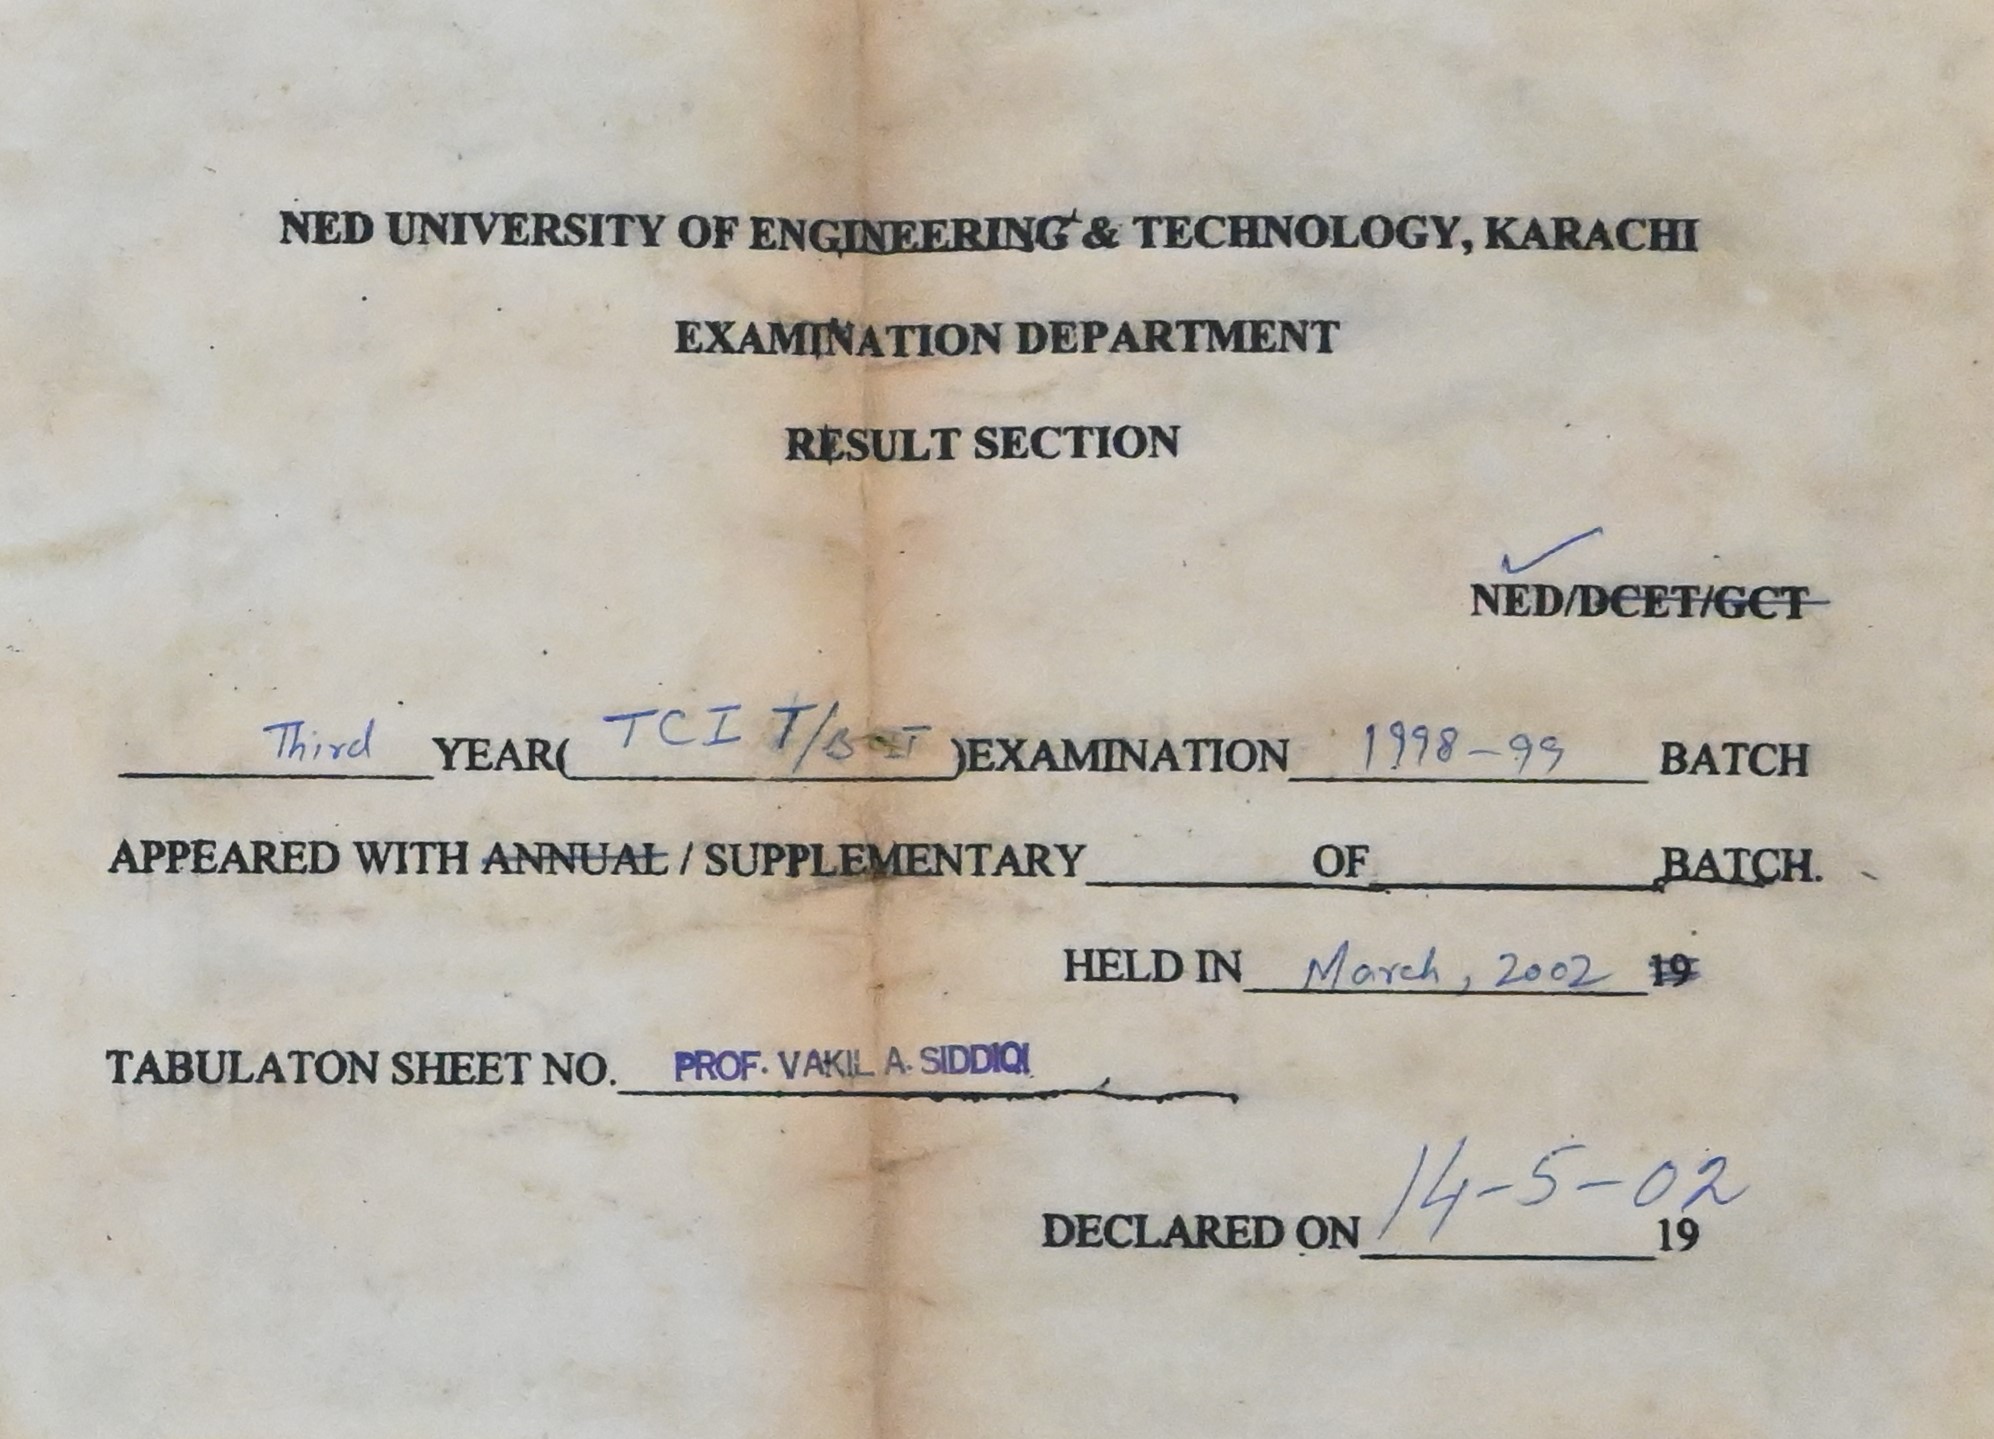 NED UNIVERSITY OF ENGINEERING & TECHNOLOGY, KARACHI
EXAMINATION DEPARTMENT
RESULT SECTION
NED/DCET/GCT
Third YEAR( TCI T/ )EXAMINATION 1998-99 BATCH
APPEARED WITH ANNUAL / SUPPLEMENTARY OF BATCH.
HELD IN March, 2002 19
TABULATON SHEET NO. PROF. VAKIL A. SIDDIQI
DECLARED ON 14-5-02 19